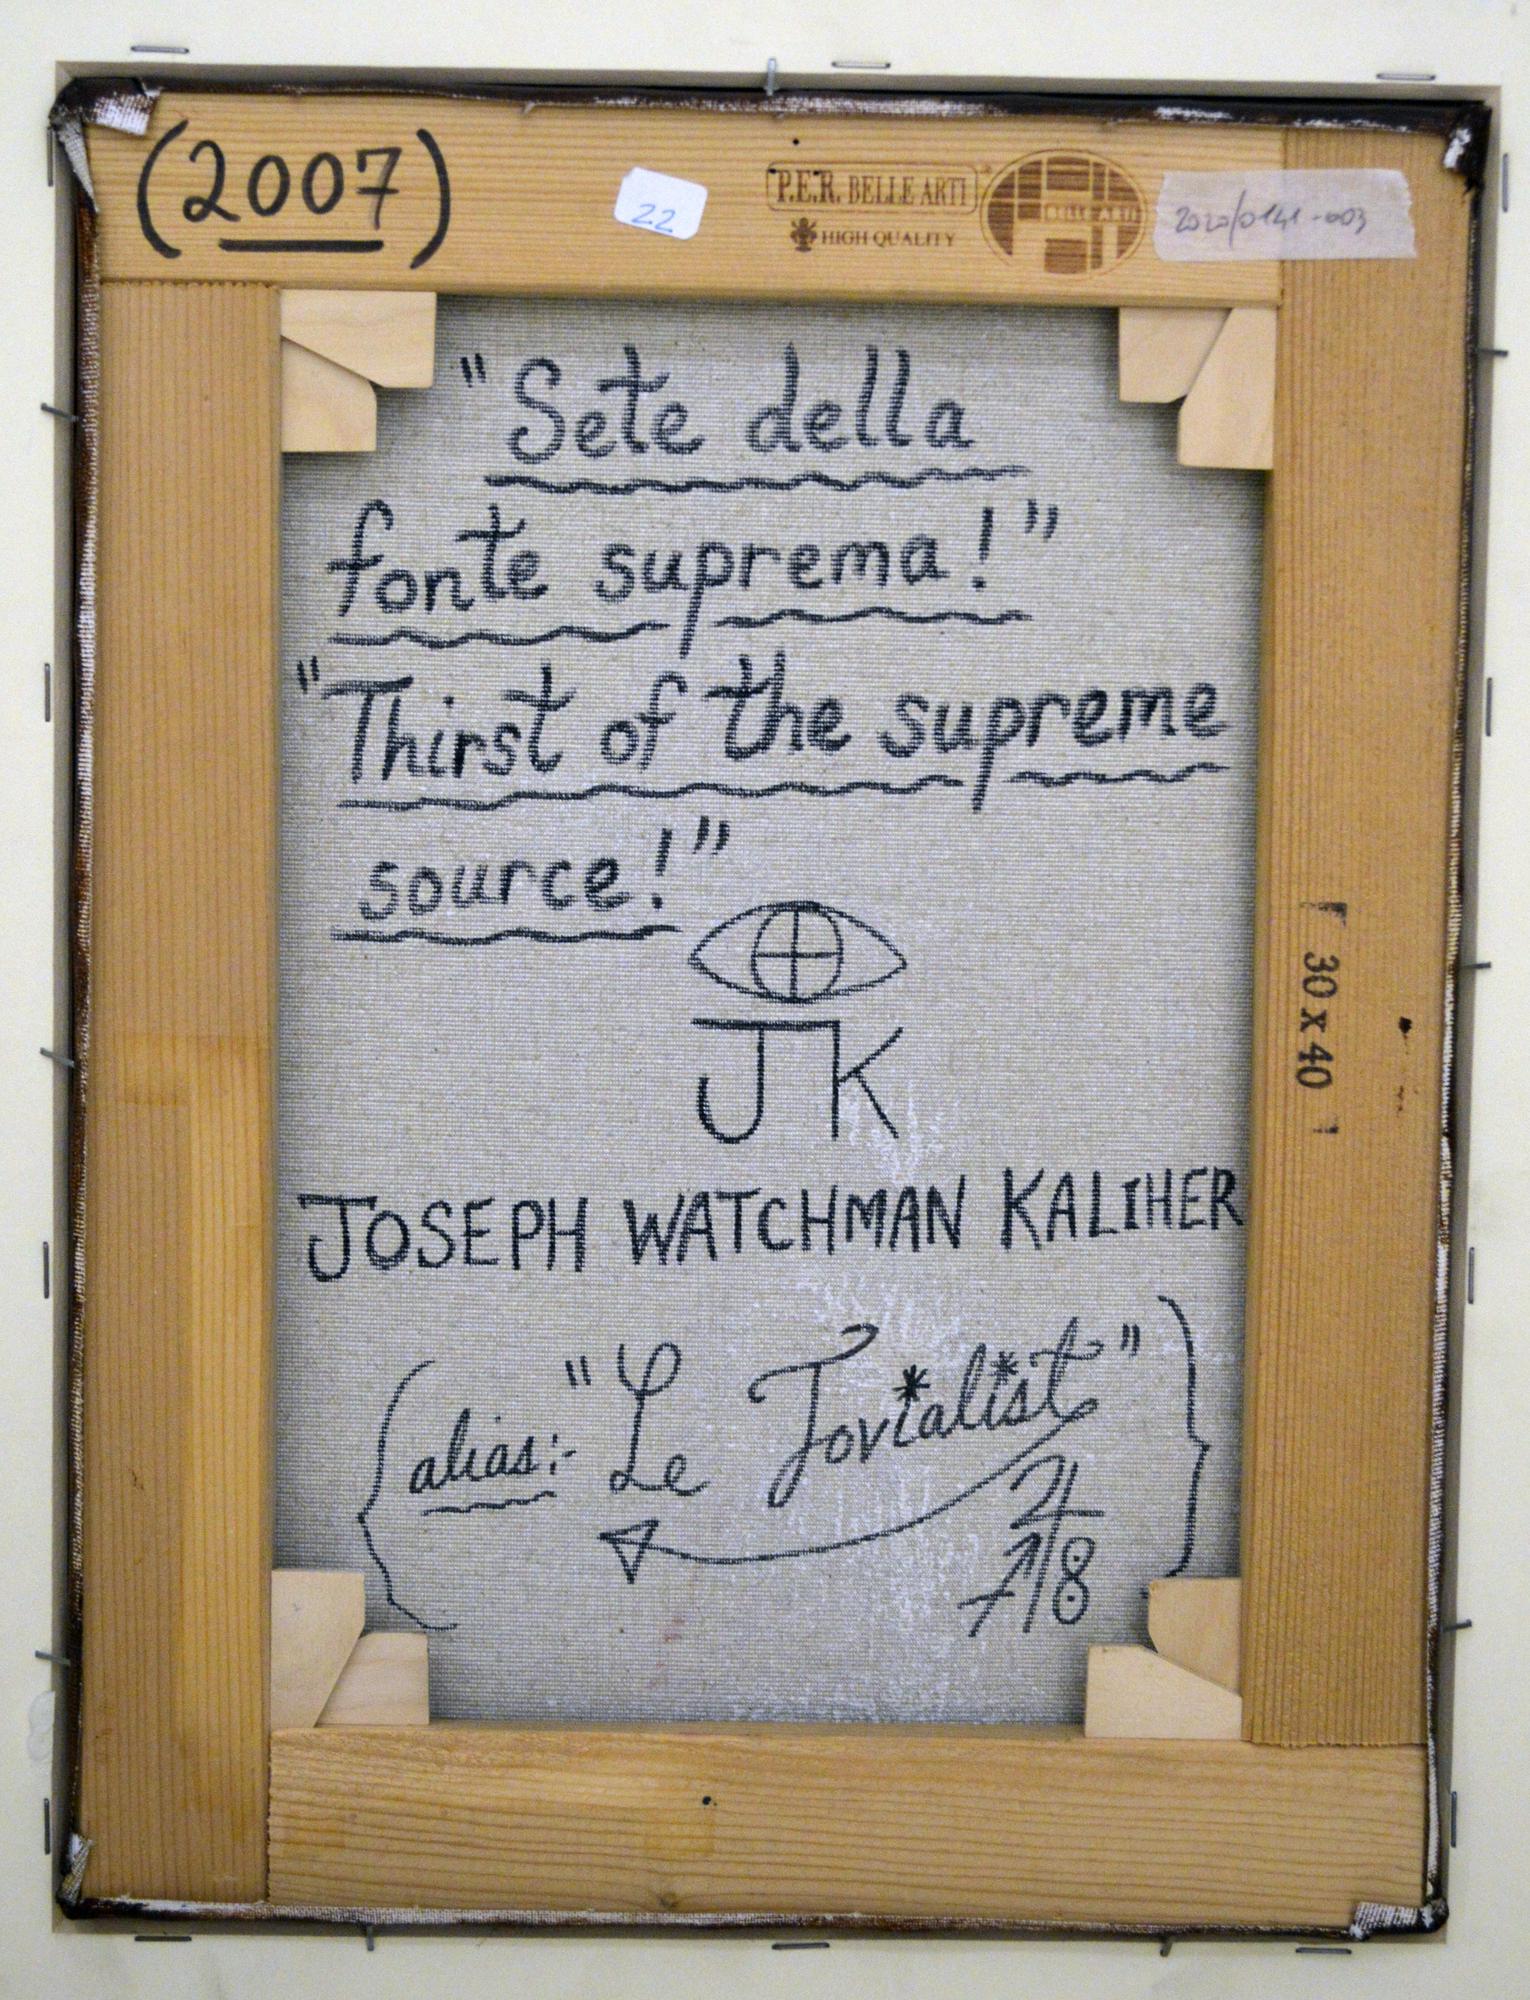 (2007)
22
P.E.R. BELLE ARTI
HIGH QUALITY
2020/0141-003
"Sete della
fonte suprema!"
"Thirst of the supreme
source!"
30 x 40
JK
JOSEPH WATCHMAN KALIHER
alias:- "Le Jovialist"